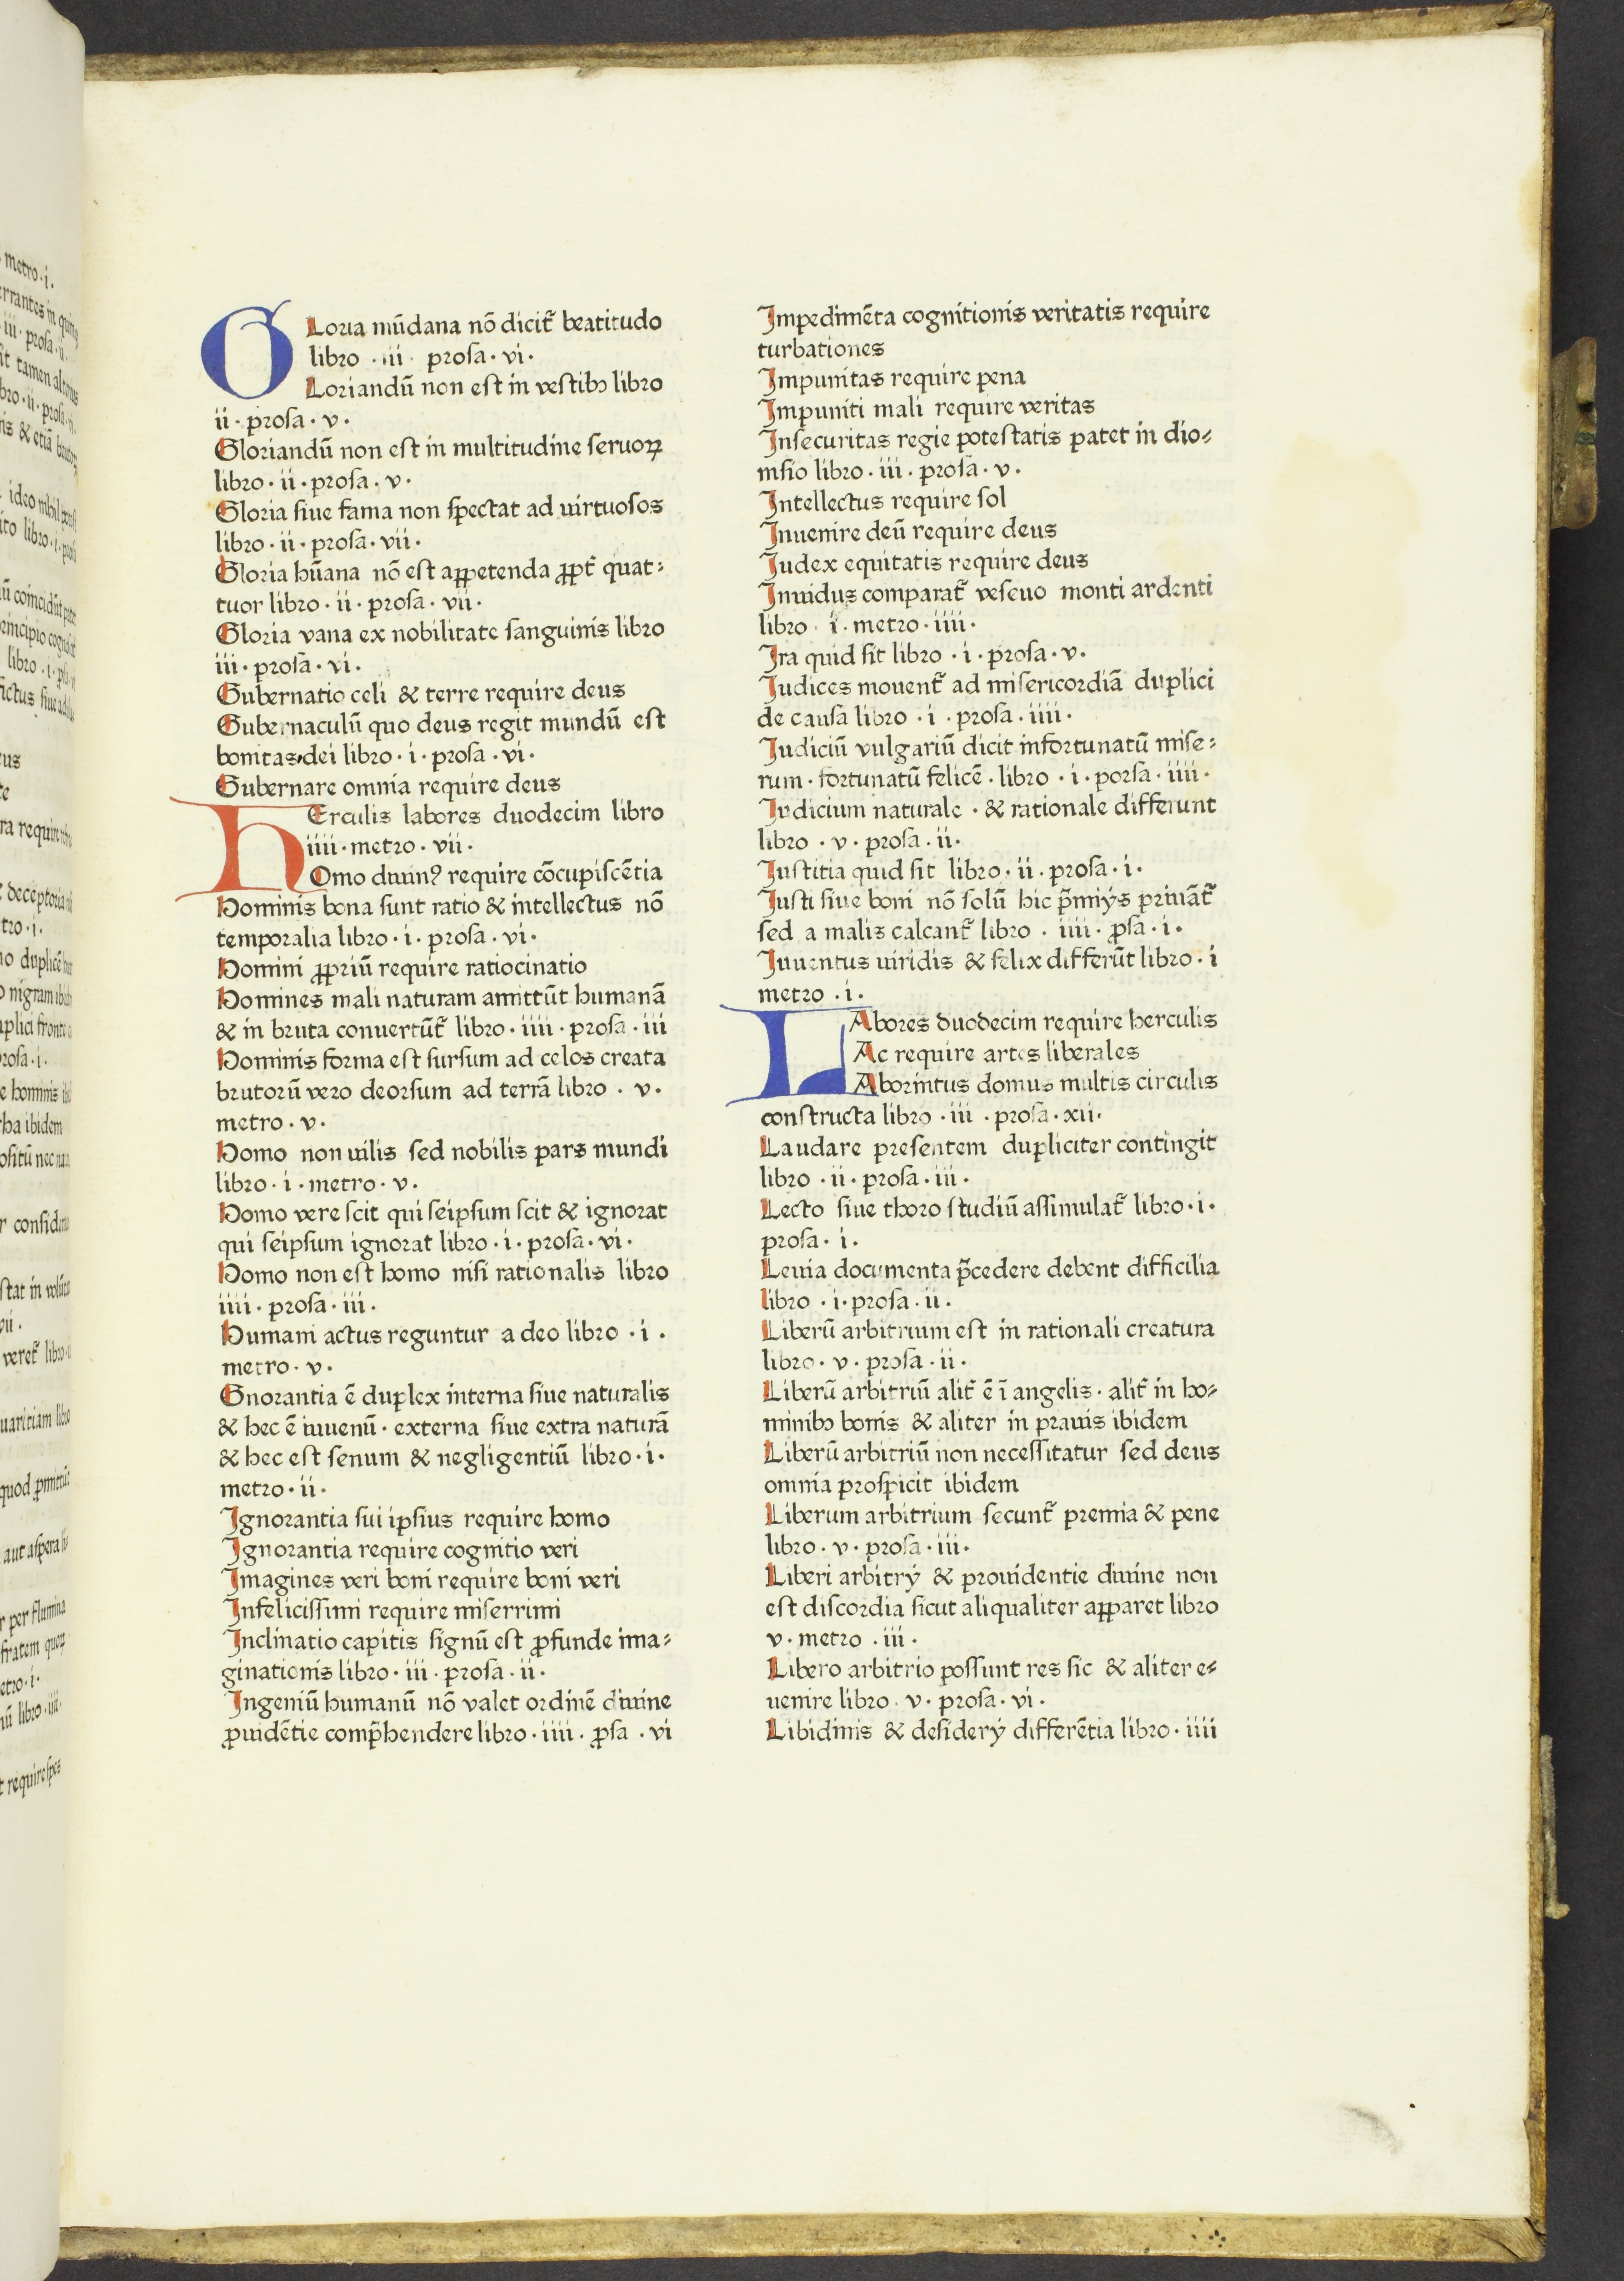 GLoria mūdana nō dicit᷑ beatitudo
libro · iii · prosa · vi ·
Loriandū non est in vestibꝫ libro
ii · prosa · v ·
Gloriandū non est in multitudine seruoꝝ
libro · ii · prosa · v ·
Gloria siue fama non spectat ad uirtuosos
libro · ii · prosa · vii ·
Gloria hūana nō est appetenda ꝓpt᷑ quat⸗
tuor libro · ii · prosa · vii ·
Gloria vana ex nobilitate sanguinis libro
iii · prosa · vi ·
Gubernatio celi & terre require deus
Gubernaculū quo deus regit mundū est
bonitas dei libro · i · prosa · vi ·
Gubernare omnia require deus
HErculis labores duodecim libro
iiii · metro · vii ·
Omo diuinꝰ require cōcupiscētia
Hominis bona sunt ratio & intellectus nō
temporalia libro · i · prosa · vi ·
Homini ꝓpriū require ratiocinatio
Homines mali naturam amittūt humanā
& in bruta conuertūt᷑ libro · iiii · prosa · iii
Hominis forma est sursum ad celos creata
brutorū vero deorsum ad terrā libro · v ·
metro · v ·
Homo non uilis sed nobilis pars mundi
libro · i · metro · v ·
Homo vere scit qui seipsum scit & ignorat
qui seipsum ignorat libro · i · prosa · vi ·
Homo non est homo nisi rationalis libro
iiii · prosa · iii ·
Humani actus reguntur a deo libro · i ·
metro · v ·
Gnorantia ē duplex interna siue naturalis
& hec ē iuuenū · externa siue extra naturā
& hec est senum & negligentiū libro · i ·
metro · ii ·
Ignorantia sui ipsius require homo
Ignorantia require cognitio veri
Imagines veri boni require boni veri
Infelicissimi require miserrimi
Inclinatio capitis signū est ꝓfunde ima⸗
ginationis libro · iii · prosa · ii ·
Ingeniū humanū nō valet ordinē diuine
ꝓuidētie comp̄hendere libro · iiii · ꝓsa · vi
Impedimēta cognitionis veritatis require
turbationes
Impunitas require pena
Impuniti mali require veritas
Insecuritas regie potestatis patet in dio⸗
nisio libro · iii · prosa · v ·
Intellectus require sol
Inuenire deū require deus
Iudex equitatis require deus
Inuidus comparat᷑ veseuo monti ardenti
libro · i · metro · iiii ·
Ira quid sit libro · i · prosa · v ·
Iudices mouent᷑ ad misericordiā duplici
de causa libro · i · prosa · iiii ·
Iudiciū vulgariū dicit infortunatū mise⸗
rum · fortunatū felicē · libro · i · porsa · iiii ·
Iudicium naturale · & rationale differunt
libro · v · prosa · ii ·
Iustitia quid sit libro · ii · prosa · i ·
Iusti siue boni nō solū hic p̄miijs priuāt᷑
sed a malis calcant᷑ libro · iiii · ꝓsa · i ·
Iuuentus uiridis & felix differūt libro · i
metro · i ·
LAbores duodecim require herculis
Ac require artes liberales
Aborintus domus multis circulis
constructa libro · iii · prosa · xii ·
Laudare presentem dupliciter contingit
libro · ii · prosa · iii ·
Lecto siue thoro studiū assimulat᷑ libro · i ·
prosa · i ·
Leuia documenta p̄cedere debent difficilia
libro · i · prosa · ii ·
Liberū arbitrium est in rationali creatura
libro · v · prosa · ii ·
Liberū arbitriū alit᷑ ē ī angelis · alit᷑ in ho⸗
minibꝫ bonis & aliter in prauis ibidem
Liberū arbitriū non necessitatur sed deus
omnia prospicit ibidem
Liberum arbitrium secunt᷑ premia & pene
libro · v · prosa · iii ·
Liberi arbitrij & prouidentie diuine non
est discordia sicut aliqualiter apparet libro
v · metro · iii ·
Libero arbitrio possunt res sic & aliter e⸗
uenire libro · v · prosa · vi ·
Libidinis & desiderij differētia libro · iiii